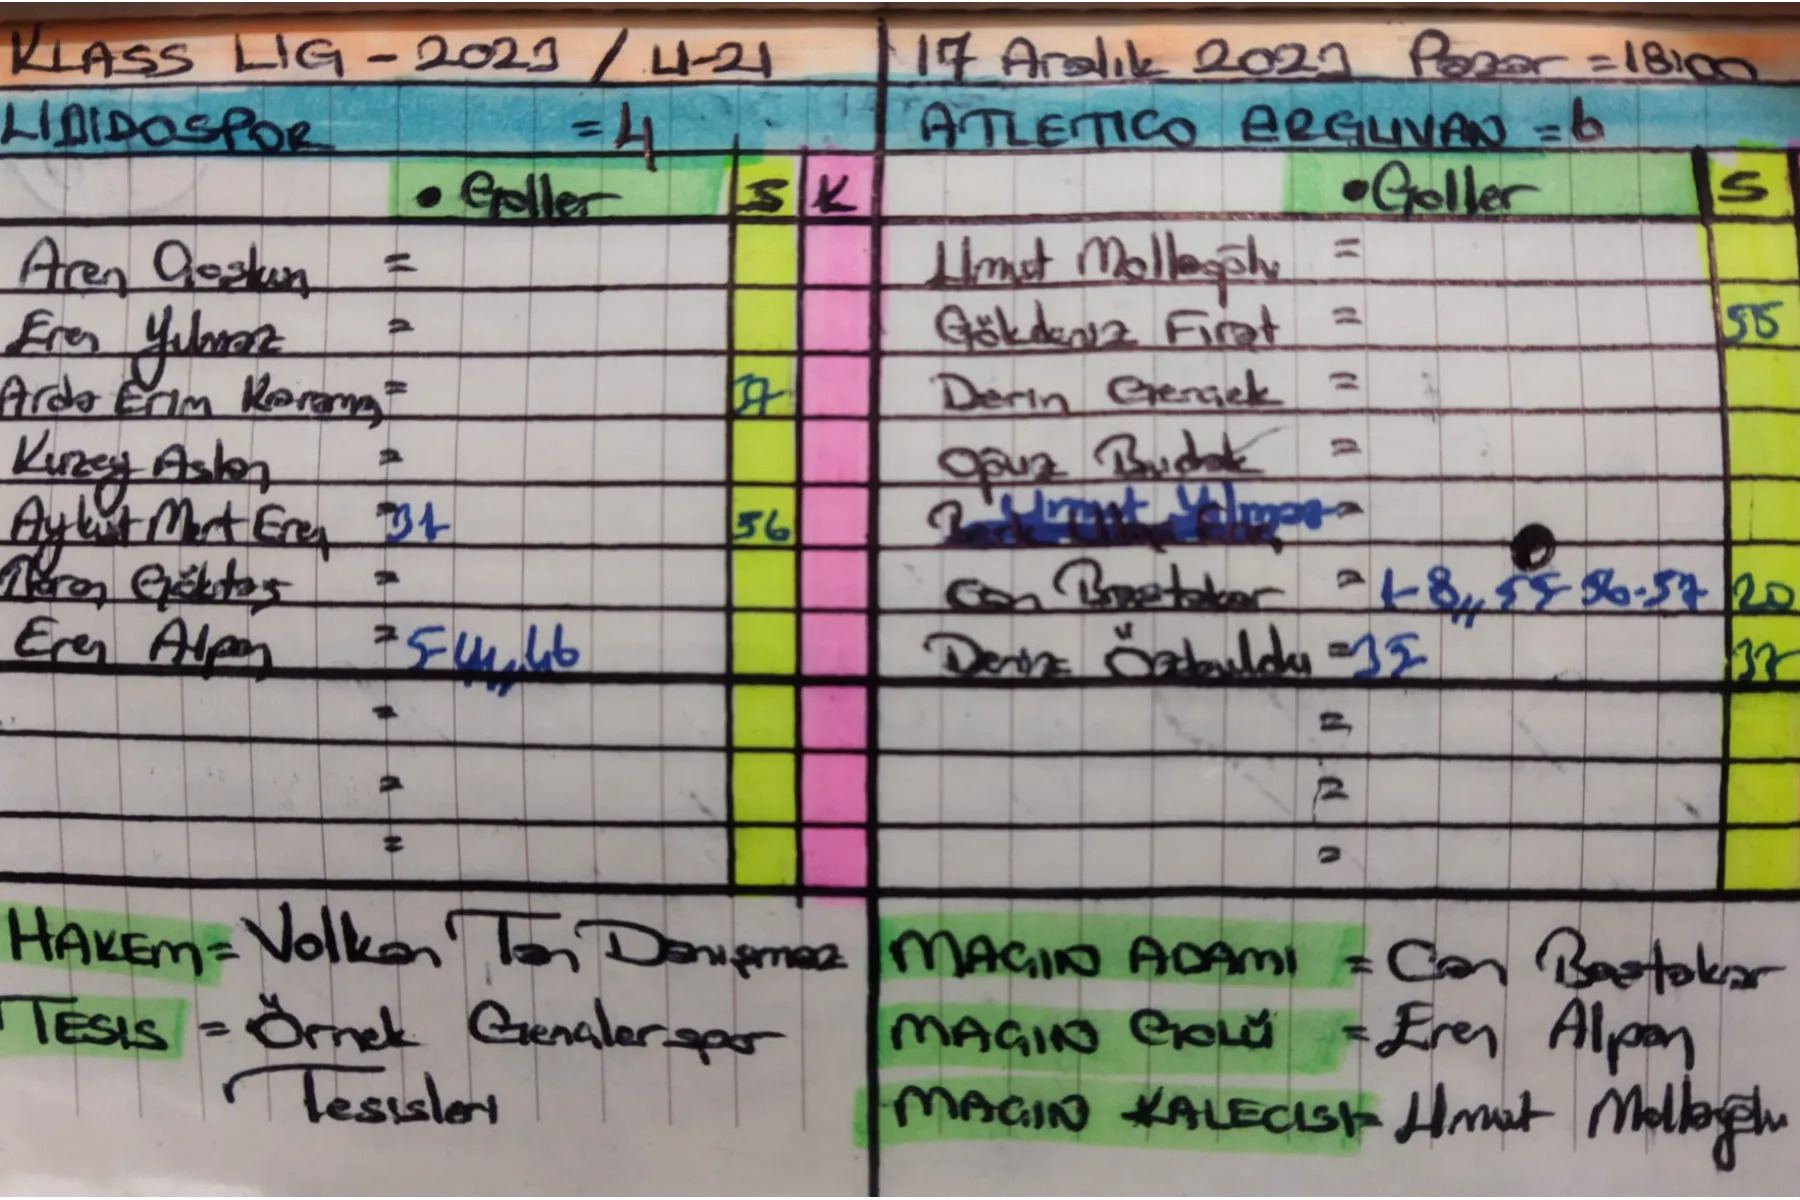 KLASS LIG - 2023 / 4-21
17 Aralık 2023 Pazar = 18:00
LIBIDOSPOR = 4
ATLETICO ERGUVAN = 6
• Goller S K
• Goller S
Aren Coşkun =
Umut Mollaoğlu =
Eren Yılmaz =
Gökdeniz Fırat = 55
Arda Erim Karamış = 37
Derin Gerçek =
Kuzey Aslan =
Oğuz Budak =
Aykut Mert Eren = 31 56
Umut Yılmaz =
Göktaş =
Can Bastakar = 1-8,, 55-56-57 20
Eren Alpan = 5-41,,46
Deniz = 35 37
=
=
=
=
=
=
HAKEM = Volkan Tan Danışmaz
TESIS = Örnek Gençlerspor
Tesisleri
MAÇIN ADAMI = Can Bastakar
MAÇIN GOLÜ = Eren Alpan
MAÇIN KALECISI = Umut Mollaoğlu